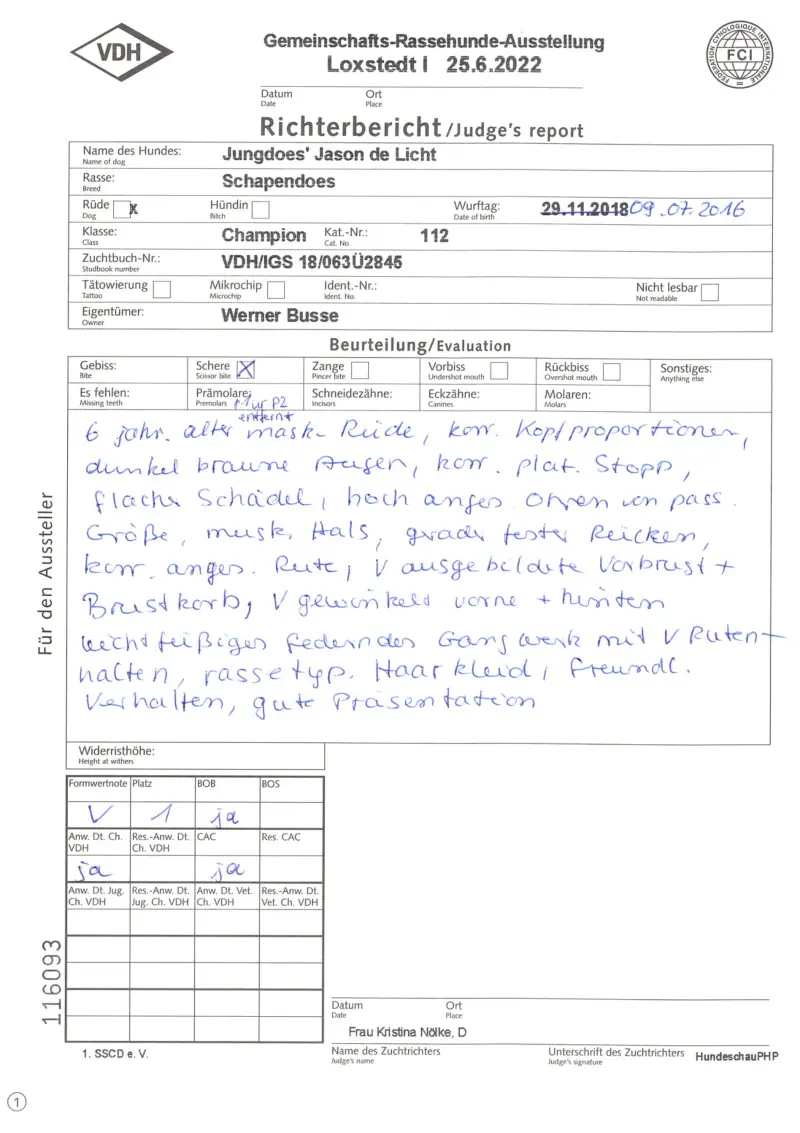 VDH
Gemeinschafts-Rassehunde-Ausstellung
FEDERATION CYNOLOGIQUE INTERNATIONALE
FCI
Loxstedt I 25.6.2022
Datum Ort
Date Place
Richterbericht/Judge's report
Name des Hundes: Jungdoes' Jason de Licht
Name of dog
Rasse: Schapendoes
Breed
Rüde x Hündin Wurftag: 29.11.2018 09.07.2016
Dog Bitch Date of birth
Klasse: Champion Kat.-Nr.: 112
Class Cat. No.
Zuchtbuch-Nr.: VDH/IGS 18/063Ü2845
Studbook number
Tätowierung Mikrochip Ident.-Nr.: Nicht lesbar
Tattoo Microchip Ident. No. Not readable
Eigentümer: Werner Busse
Owner
Beurteilung/Evaluation
Gebiss: Schere X Zange Vorbiss Rückbiss Sonstiges:
Bite Scissor bite Pincer bite Undershot mouth Overshot mouth Anything else
Es fehlen: Prämolare: Schneidezähne: Eckzähne: Molaren:
Missing teeth Premolars P2 Incisors Canines Molars
entfernt
6 jahr. alter mask. Rüde, korr. Kopfproportionen,
dunkel braune Augen, korr. plat. Stopp,
flacher Schädel, hoch anges. Ohren von pass.
Größe, musk. Hals, grader fester Rücken,
korr. anges. Rute, V ausgebildete Vorbrust +
Brustkorb, V gewinkelt vorne + hinten
leichtfüßiges federndes Gangwerk mit V Ruten-
halten, rassetyp. Haarkleid, freundl.
Verhalten, gute Präsentation
Für den Aussteller
Widerristhöhe:
Height at withers
Formwertnote Platz BOB BOS
V 1 ja
Anw. Dt. Ch. VDH Res.-Anw. Dt. Ch. VDH CAC Res. CAC
ja ja
Anw. Dt. Jug. Ch. VDH Res.-Anw. Dt. Jug. Ch. VDH Anw. Dt. Vet. Ch. VDH Res.-Anw. Dt. Vet. Ch. VDH
116093
Datum Ort
Date Place
Frau Kristina Nölke, D
1. SSCD e. V. Name des Zuchtrichters Unterschrift des Zuchtrichters HundeschauPHP
Judge's name Judge's signature
1